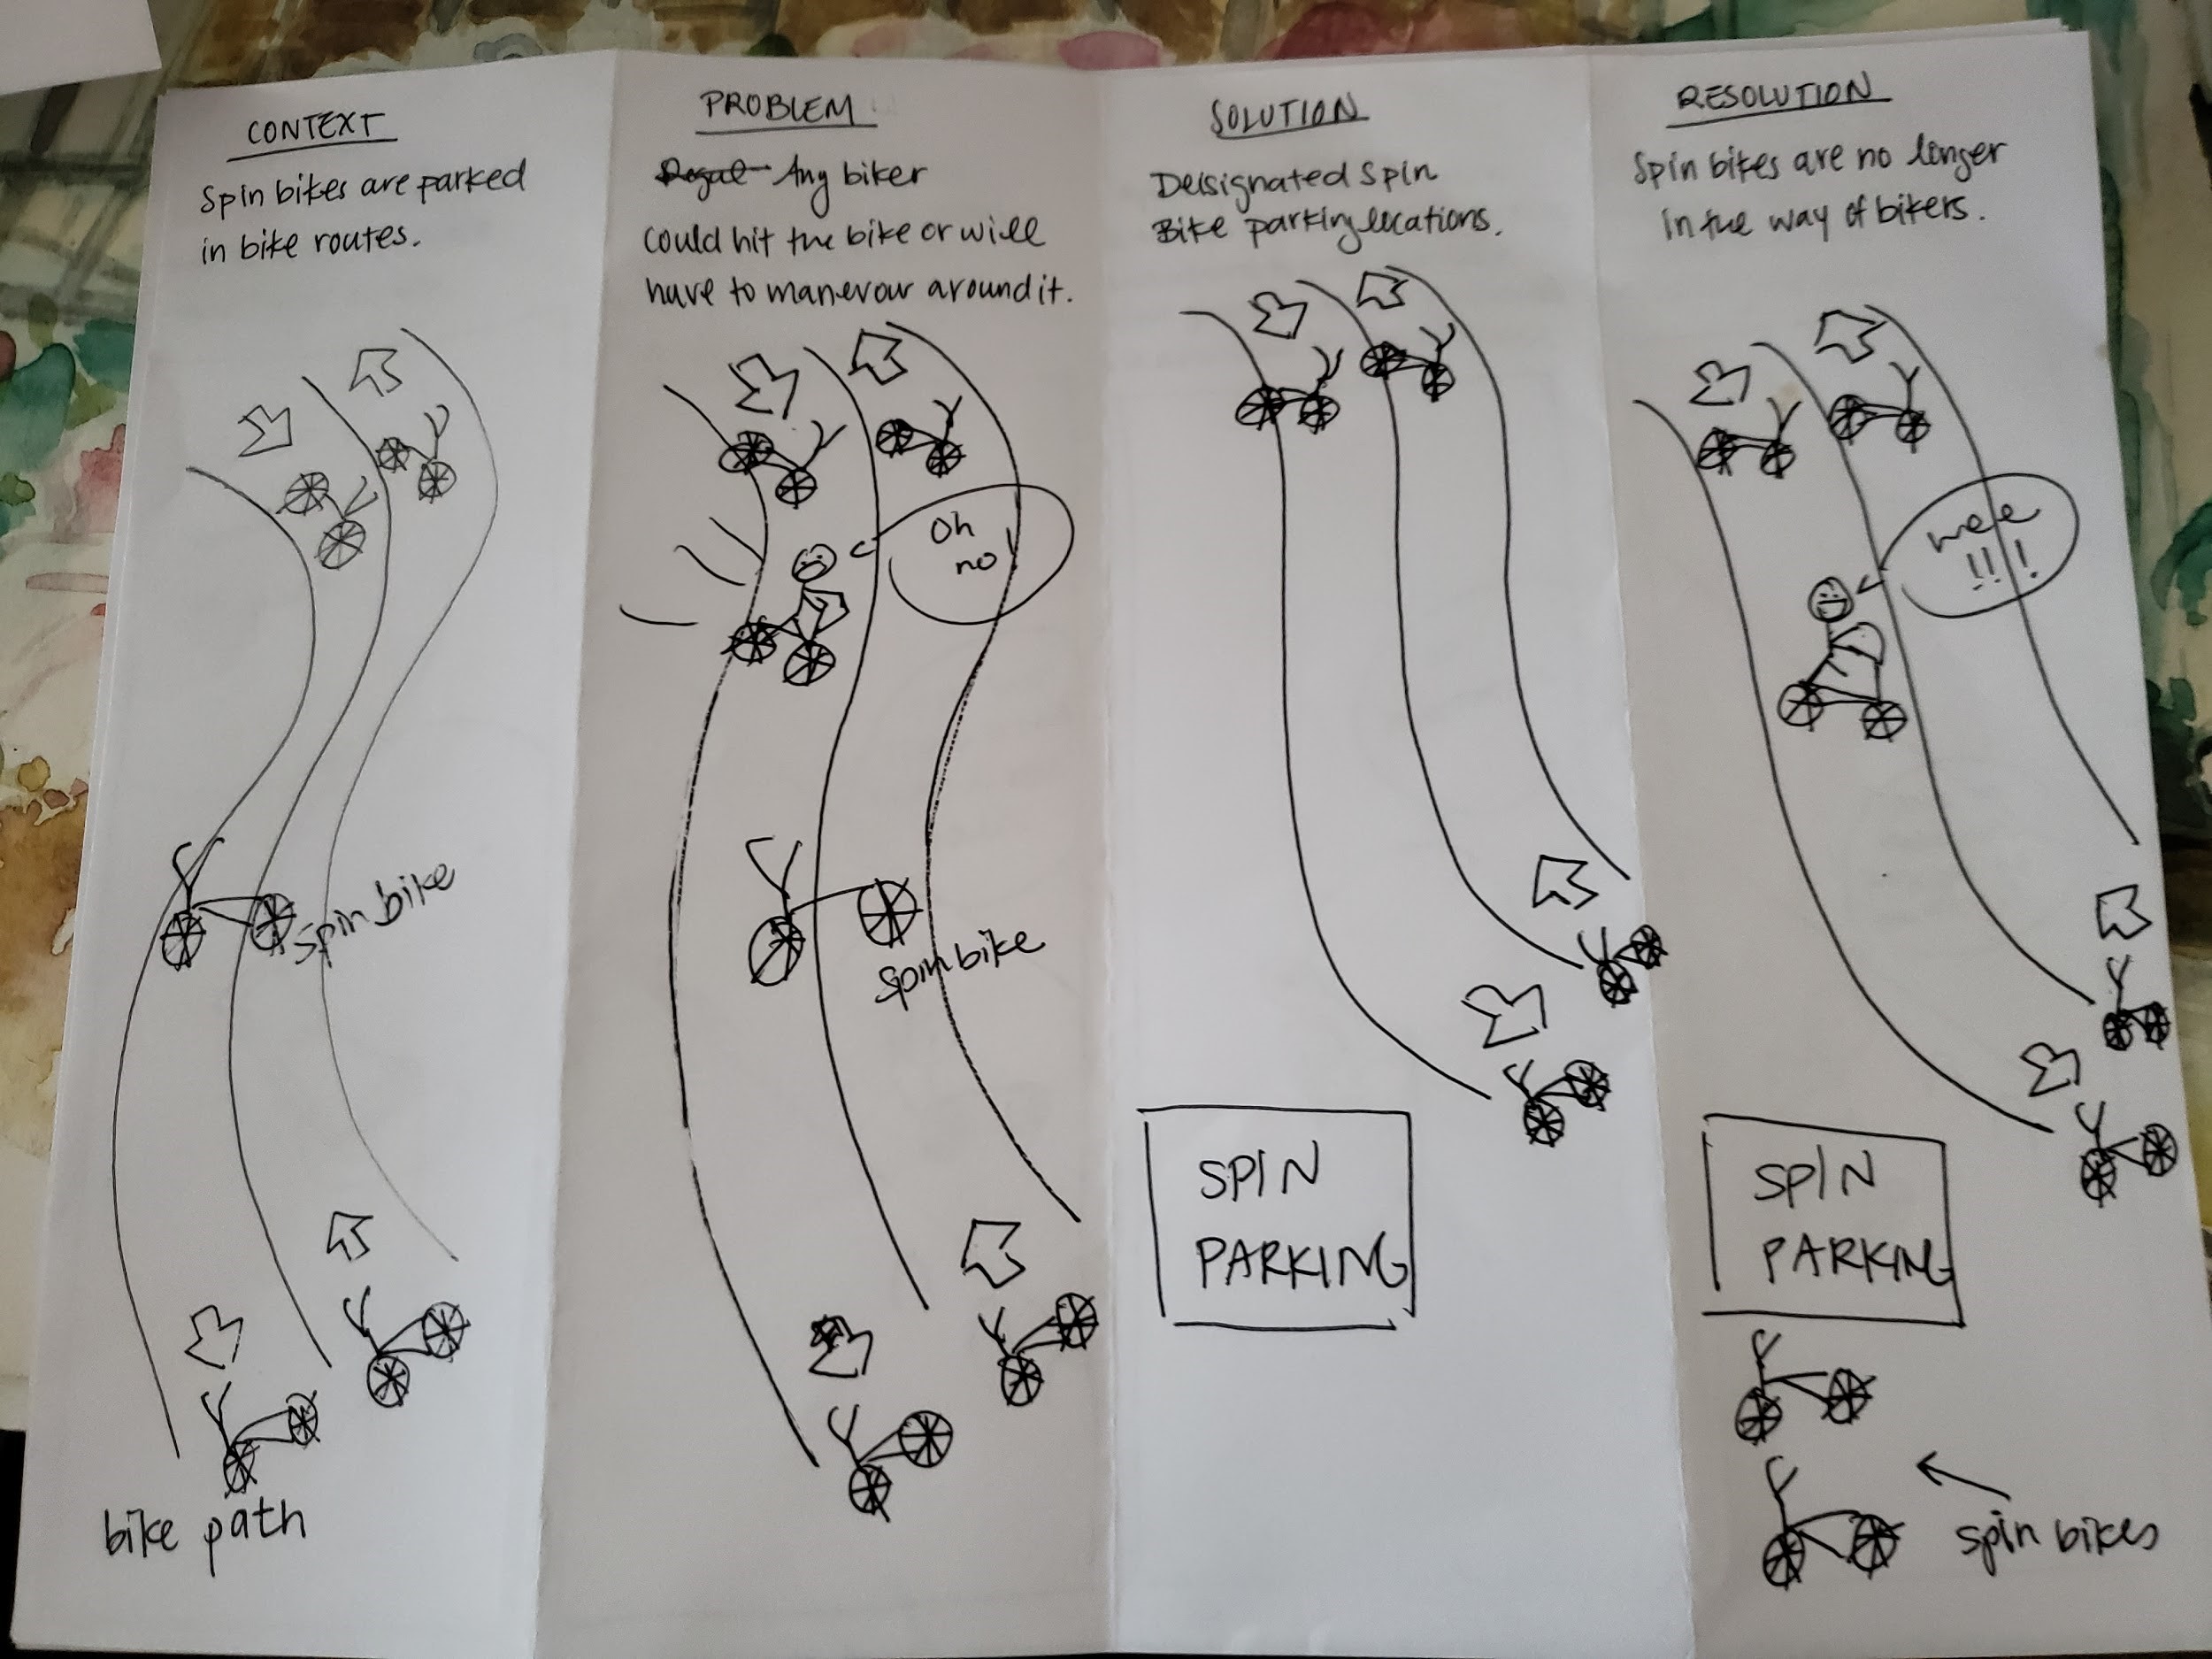 CONTEXT
Spin bikes are parked
in bike routes.
spin bike
bike path
PROBLEM
Any biker
could hit the bike or will
have to manevour around it.
Oh
no!
spin bike
SOLUTION
Deisignated Spin
Bike parking locations.
SPIN
PARKING
RESOLUTION
Spin bikes are no longer
in the way of bikers.
wee
!!!
SPIN
PARKING
spin bikes